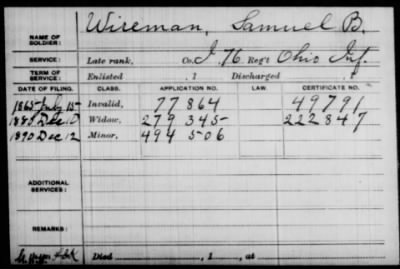 NAME OF SOLDIER: Wireman, Samuel B.
SERVICE: Late rank, Co. I, 76 Reg't Ohio Inf.
TERM OF SERVICE: Enlisted , 1 Discharged , 1
DATE OF FILING. CLASS. APPLICATION NO. LAW. CERTIFICATE NO.
1865 July 15 Invalid, 77864 49791
1880 Dec. 10 Widow, 279345 222847
1890 Dec 12 Minor, 494506
ADDITIONAL SERVICES:
REMARKS:
Died , 1 , at